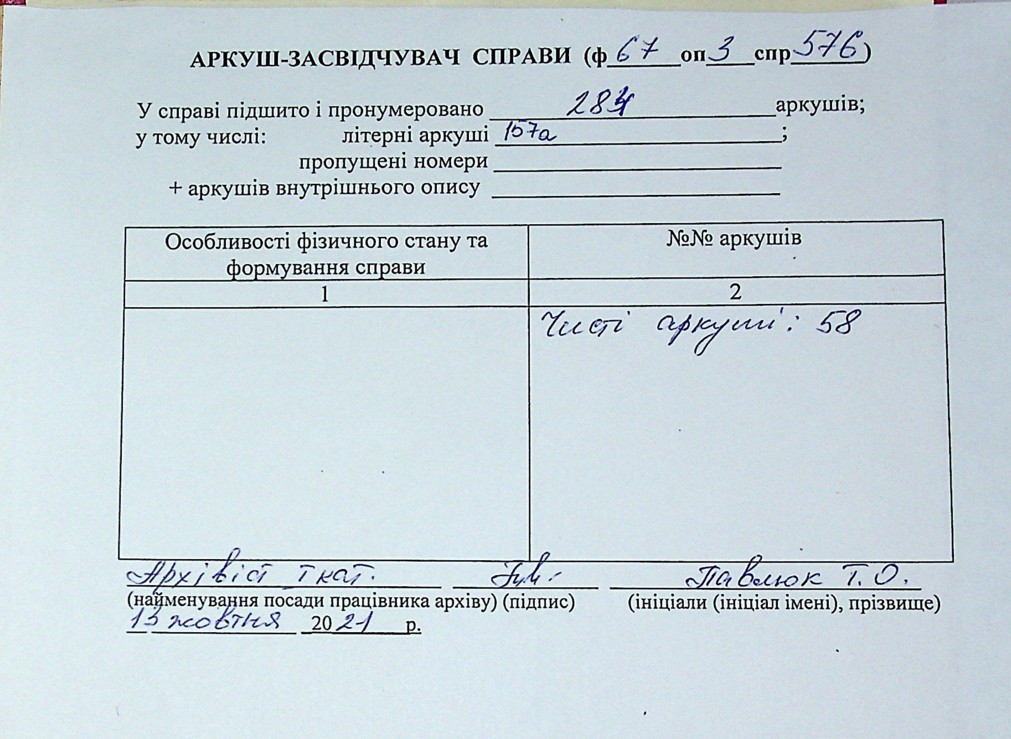 АРКУШ-ЗАСВІДЧУВАЧ СПРАВИ (ф 67 оп 3 спр 576)
У справі підшито і пронумеровано 284 аркушів;
у тому числі: літерні аркуші 157а ;
пропущені номери
+ аркушів внутрішнього опису
Особливості фізичного стану та
формування справи
№№ аркушів
1
2
Чисті аркуші: 58
Архівіст І кат. Павлюк Т.О.
(найменування посади працівника архіву) (підпис) (ініціали (ініціал імені), прізвище)
13 жовтня 2021 р.